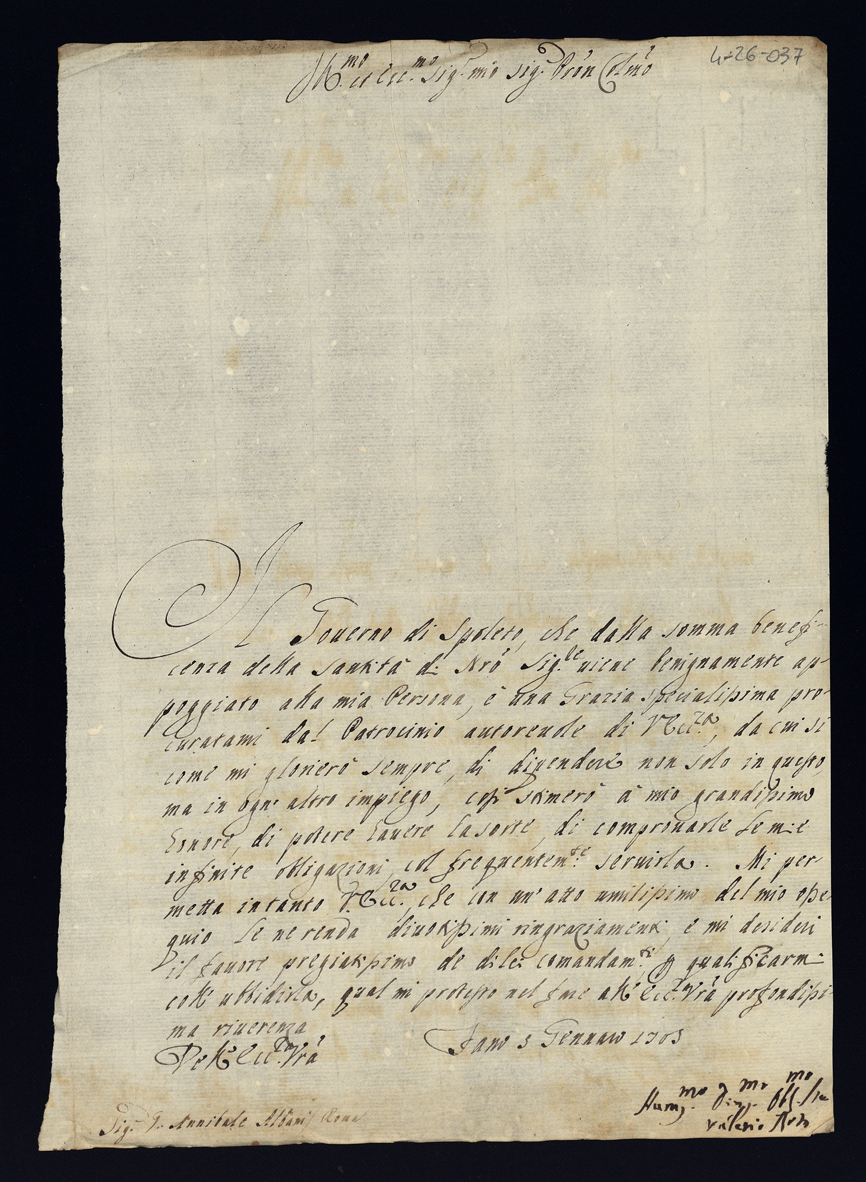 4-26-037
Ill.mo et Ecc.mo Sig.r mio Sig.r Pròn Col.mo
Il Governo di Spoleto, che dalla somma benefi-
cenza della Santità di Nrò Sig.re viene benignamente ap-
poggiato alla mia Persona, è una Grazia specialissima pro-
curatami dal Patrocinio autorevole di V. Ecc.za, da cui sì
come mi glorierò sempre, di dipendere non solo in questo,
ma in ogni altro impiego, così stimerò à mio grandissimo
honore, di potere havere la sorte, di comprovarle le mie
infinite obligazioni, col frequentem.te servirla. Mi per-
metta intanto V. Ecc.za, che con un' atto umilissimo del mio osse-
quio le ne renda divotissimi ringraziamenti, e mi desideri
il favore pregiatissimo de di lei comandam.ti p qualificarmi
coll' ubbidirla, qual mi protesto nel fine all' Ecc.za Vrà profondissi-
ma riverenza
Dell' Ecc.za Vrà
Fano 5 Gennaro 1703
Hum.mo Div.mo Obl.mo
Valerio
Sig.r D. Annibale Albani Roma